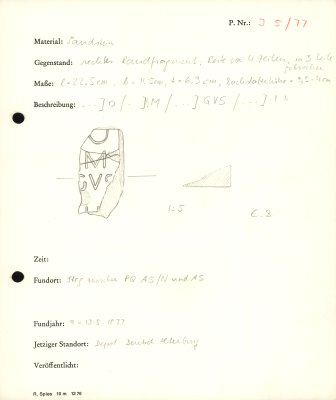 P. Nr.: J 5/77
Material: Sandstein
Gegenstand: rechtes Randfragment, Rest von 4 Zeilen, in 3 Teile
gebrochen
Maße: l = 22,5 cm, b = 11,5 cm, t = 6,3 cm, Buchstabenhöhe = 3,5-4 cm
Beschreibung: ...] O /...] M /...] GVS /...]
M
GVS
1:5
C. 3
Zeit:
Fundort: PQ A5/N und A5
Fundjahr: 1977
Jetziger Standort: Depot
Veröffentlicht:
R. Spies 10 m 12 76